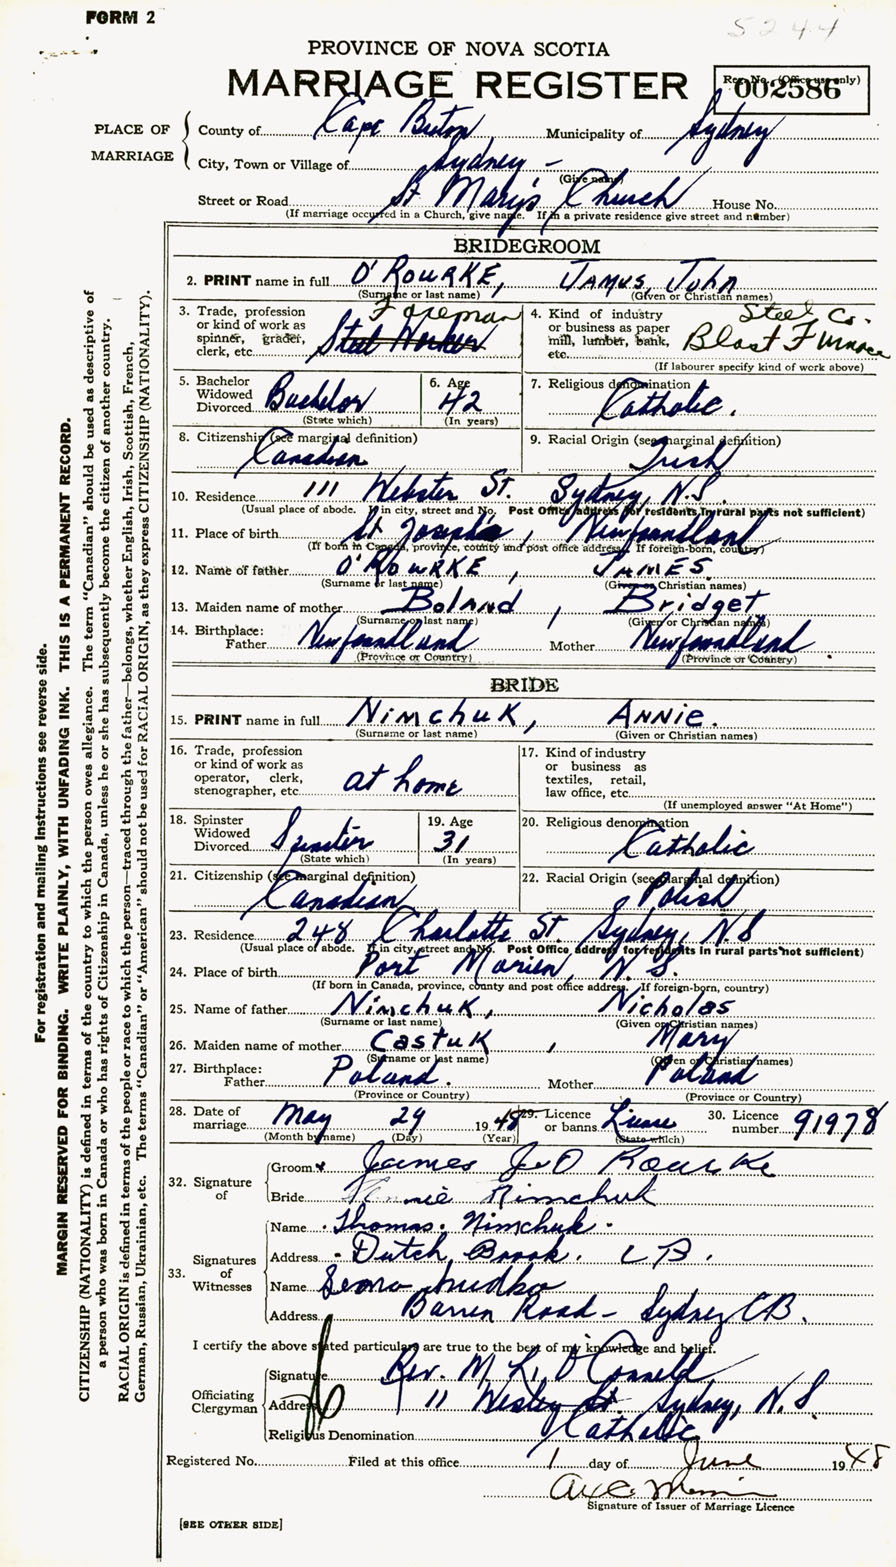 FORM 2
5244
PROVINCE OF NOVA SCOTIA
MARRIAGE REGISTER
Reg. No. (Office use only)
002586
PLACE OF MARRIAGE
County of Cape Breton Municipality of Sydney
City, Town or Village of Sydney -
(Give name)
Street or Road St Mary's Church House No.
(If marriage occurred in a Church, give name. If in a private residence give street and number)
BRIDEGROOM
2. PRINT name in full O'ROURKE, JAMES, JOHN
(Surname or last name) (Given or Christian names)
3. Trade, profession or kind of work as spinner, grader, clerk, etc. Foreman Steel Worker
4. Kind of industry or business as paper mill, lumber, bank, etc. Steel Co. Blast Furnace
(If labourer specify kind of work above)
5. Bachelor Widowed Divorced Bachelor
(State which)
6. Age 42
(In years)
7. Religious denomination Catholic.
8. Citizenship (see marginal definition) Canadian
9. Racial Origin (see marginal definition) Irish
10. Residence 111 Webster St. Sydney, N.S.
(Usual place of abode. If in city, street and No. Post Office address for residents in rural parts not sufficient)
11. Place of birth St Joseph's, Newfoundland
(If born in Canada, province, county and post office address. If foreign-born, country)
12. Name of father O'ROURKE, JAMES.
(Surname or last name) (Given or Christian names)
13. Maiden name of mother Boland, Bridget
(Surname or last name) (Given or Christian names)
14. Birthplace: Father Newfoundland Mother Newfoundland.
(Province or Country) (Province or Country)
BRIDE
15. PRINT name in full NIMCHUK, ANNIE.
(Surname or last name) (Given or Christian names)
16. Trade, profession or kind of work as operator, clerk, stenographer, etc. at home
17. Kind of industry or business as textiles, retail, law office, etc.
(If unemployed answer "At Home")
18. Spinster Widowed Divorced Spinster
(State which)
19. Age 31
(In years)
20. Religious denomination Catholic
21. Citizenship (see marginal definition) Canadian
22. Racial Origin (see marginal definition) Polish
23. Residence 248 Charlotte St Sydney, N S
(Usual place of abode. If in city, street and No. Post Office address for residents in rural parts not sufficient)
24. Place of birth Port Morien, N.S.
(If born in Canada, province, county and post office address. If foreign-born, country)
25. Name of father Nimchuk, Nicholas
(Surname or last name) (Given or Christian names)
26. Maiden name of mother Castuk, Mary
(Surname or last name) (Given or Christian names)
27. Birthplace: Father Poland. Mother Poland
(Province or Country) (Province or Country)
28. Date of marriage May 29 1948
(Month by name) (Day) (Year)
29. Licence or banns License
(State which)
30. Licence number 91978
32. Signature of
Groom James J. O Rourke
Bride Annie Nimchuk
33. Signatures of Witnesses
Name Thomas. Nimchuk.
Address Dutch Brook. C B.
Name
Address Barren Road - Sydney CB.
I certify the above stated particulars are true to the best of my knowledge and belief.
Officiating Clergyman
Signature Rev. M. L. O'Connell
Address 11 Wesley St. Sydney, N.S
Religious Denomination Catholic
Registered No. Filed at this office 1 day of June 1948
Signature of Issuer of Marriage Licence
[SEE OTHER SIDE]
For registration and mailing instructions see reverse side.
MARGIN RESERVED FOR BINDING. WRITE PLAINLY, WITH UNFADING INK. THIS IS A PERMANENT RECORD.
CITIZENSHIP (NATIONALITY) is defined in terms of the country to which the person owes allegiance. The term "Canadian" should be used as descriptive of
a person who was born in Canada or who has rights of Citizenship in Canada, unless he or she has subsequently become the citizen of another country.
RACIAL ORIGIN is defined in terms of the people or race to which the person—traced through the father—belongs, whether English, Irish, Scottish, French,
German, Russian, Ukrainian, etc. The terms "Canadian" or "American" should not be used for RACIAL ORIGIN, as they express CITIZENSHIP (NATIONALITY).